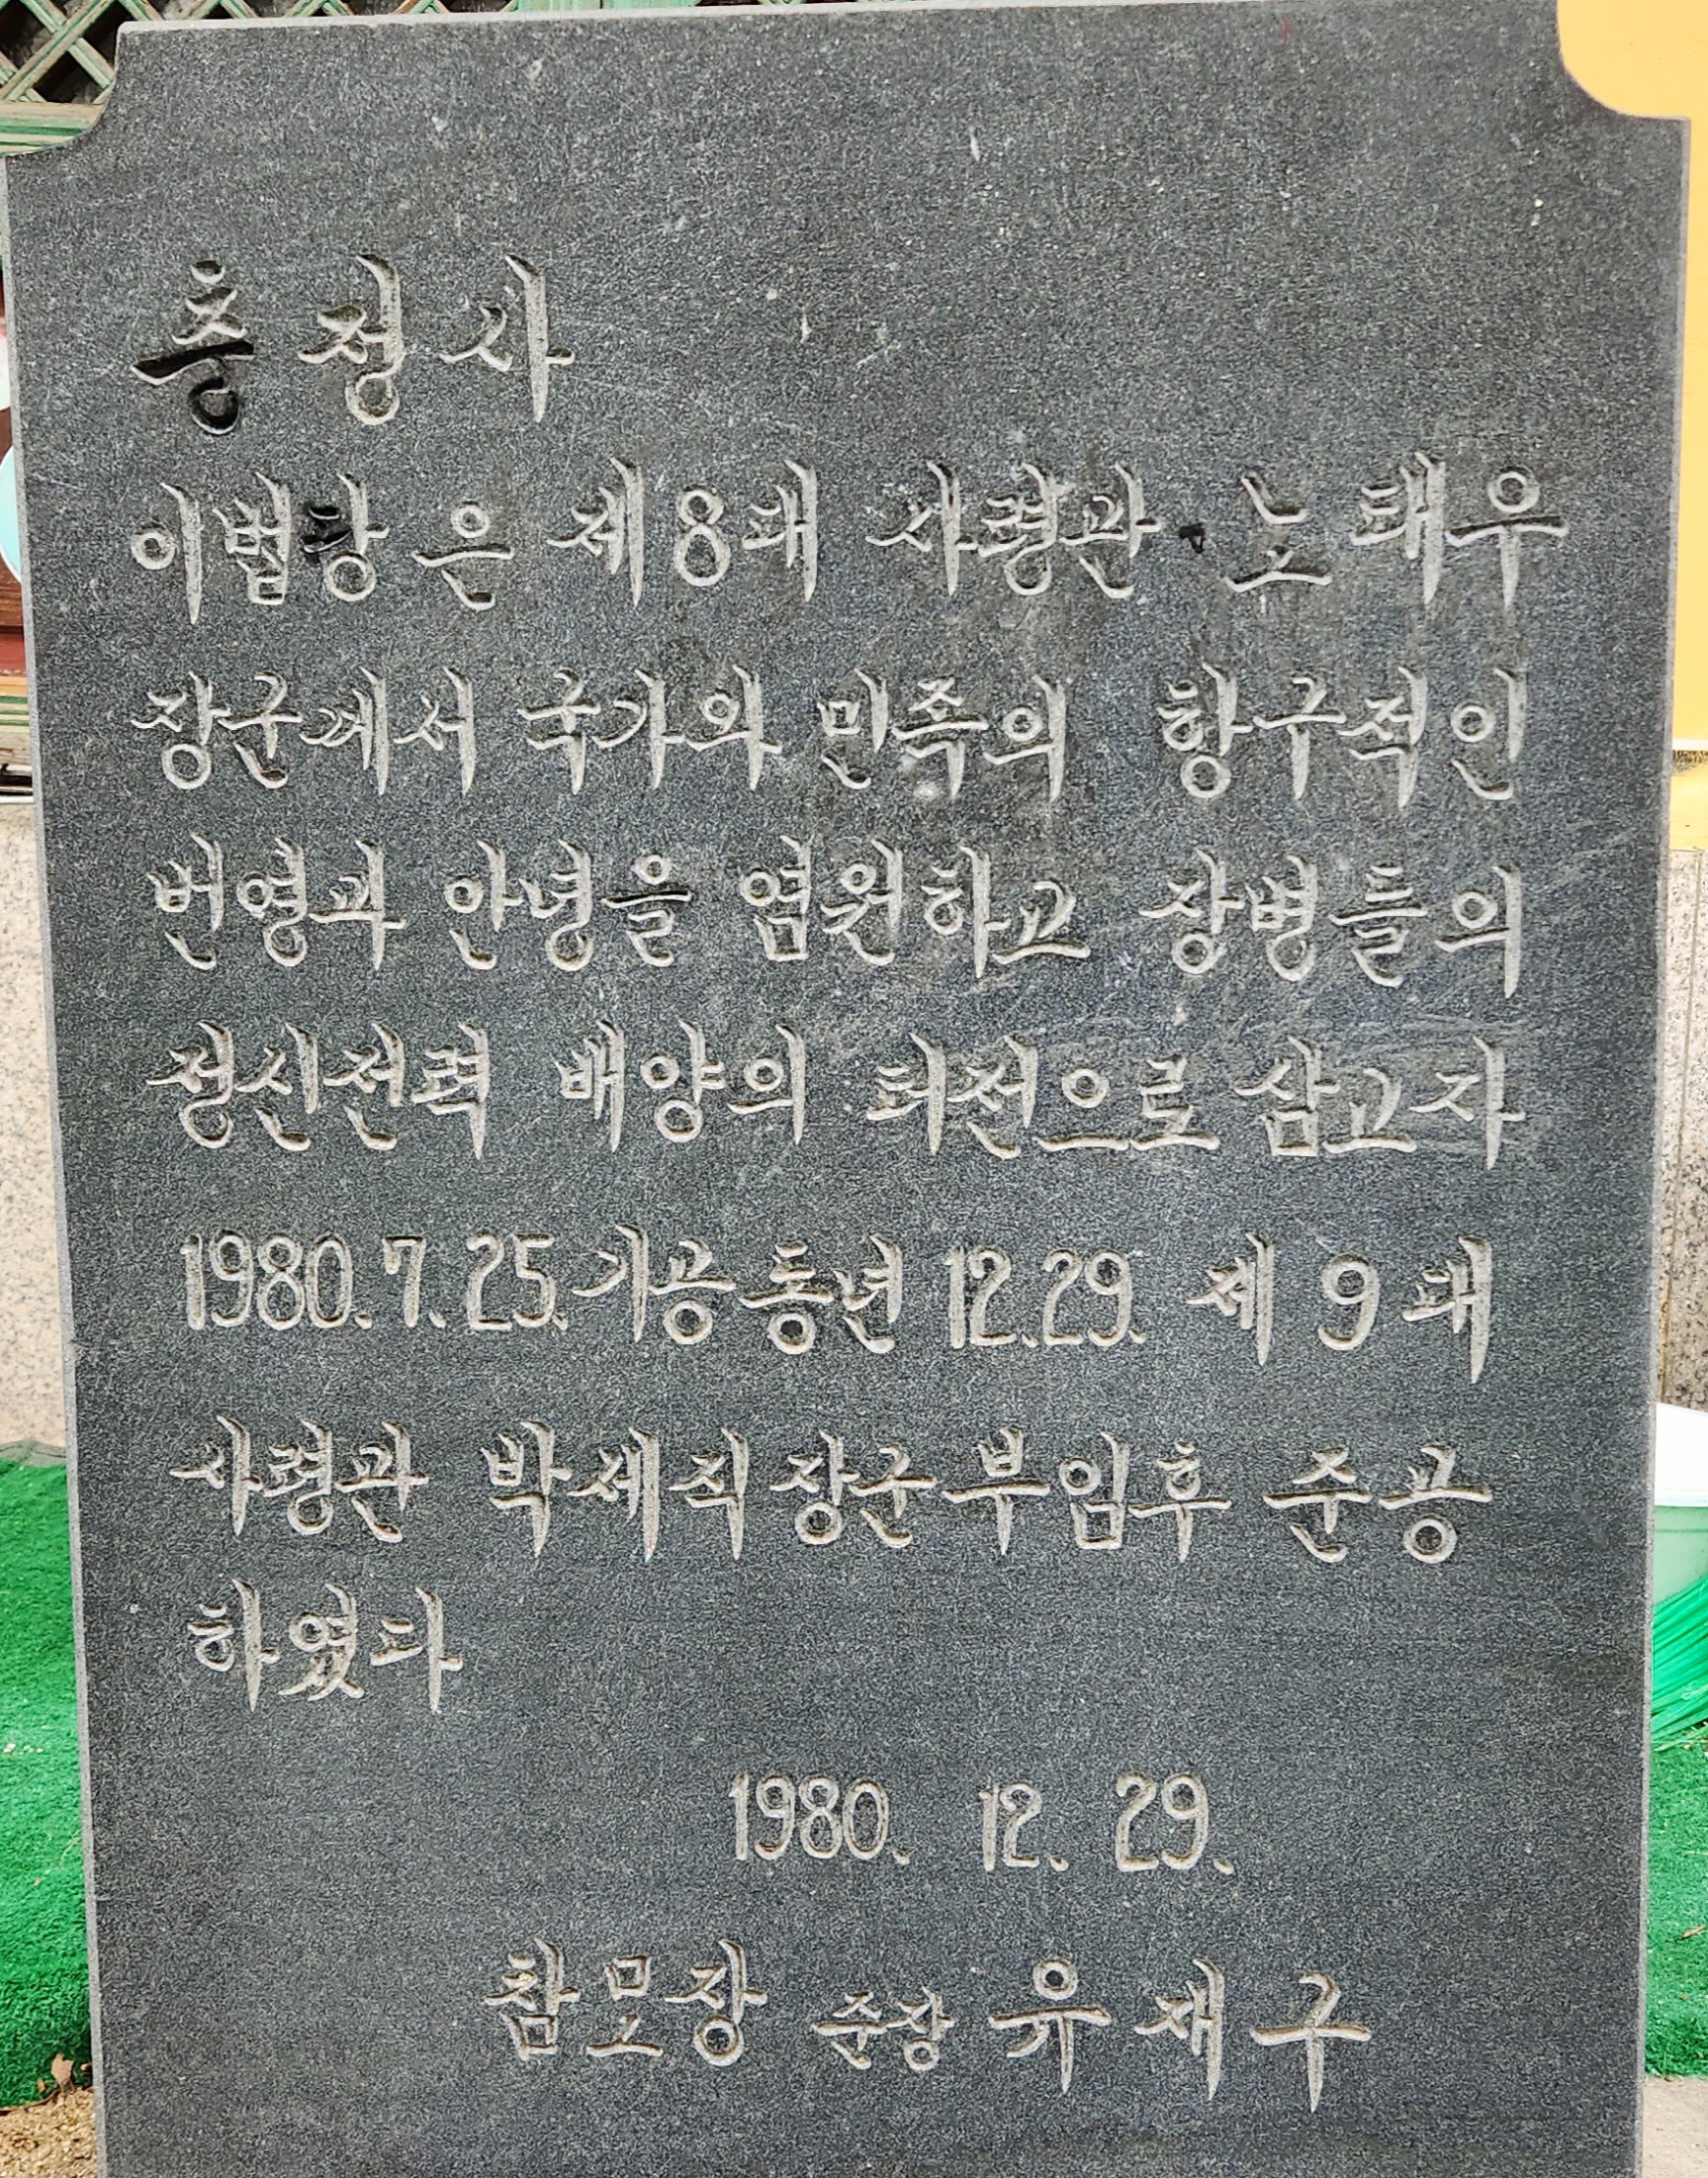 충정사
이법당은 제8대 사령관 노태우
장군께서 국가와 민족의 항구적인
번영과 안녕을 염원하고 장병들의
정신전력 배양의 터전으로 삼고자
1980.7.25. 기공 동년 12.29. 제9대
사령관 박세직장군부임후 준공
하였다
1980. 12. 29.
참모장 준장 유재구